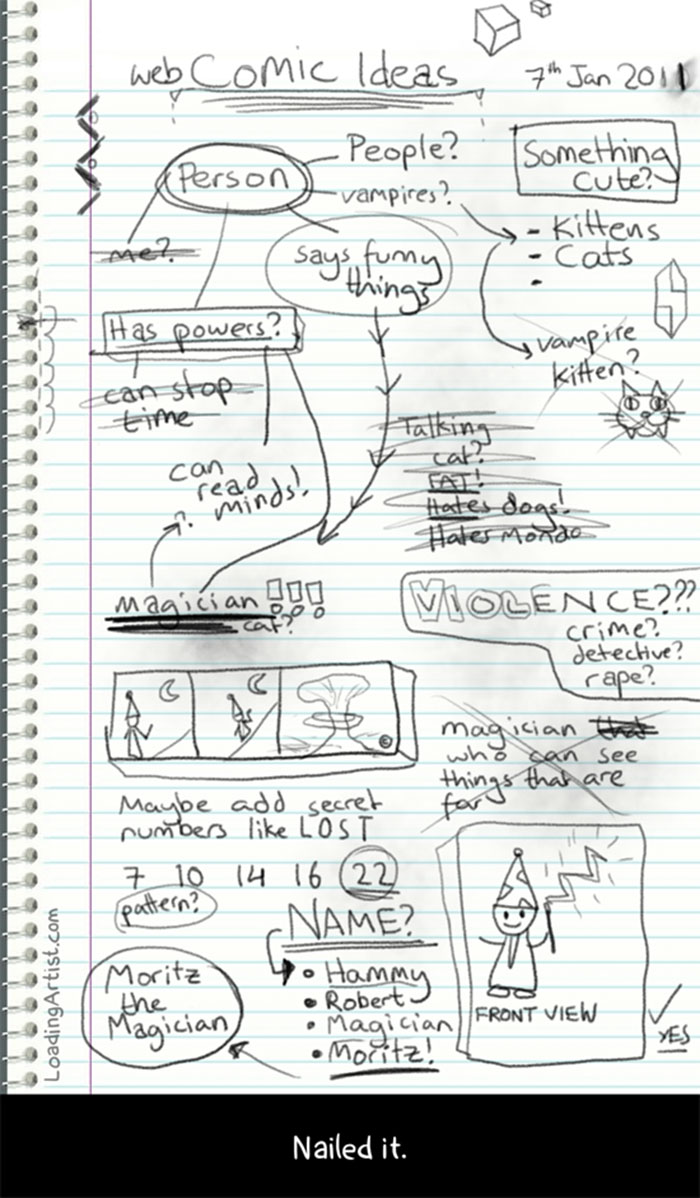 web Comic Ideas
7th Jan 2011
Person
People?
vampires?
Something
cute?
me?
says funny
things
- Kittens
- Cats
-
Has powers?
vampire
kitten?
can stop
time
Talking
cat?
FAT!
Hates dogs!
Hates Mondo
can
read
minds!
magician !!!
cat?
VIOLENCE???
crime?
detective?
rape?
magician that
who can see
things that are
far
Maybe add secret
numbers like LOST
7 10 14 16 22
pattern?
NAME?
• Hammy
• Robert
• Magician
• Moritz!
Moritz
the
Magician
FRONT VIEW
YES
LoadingArtist.com
Nailed it.